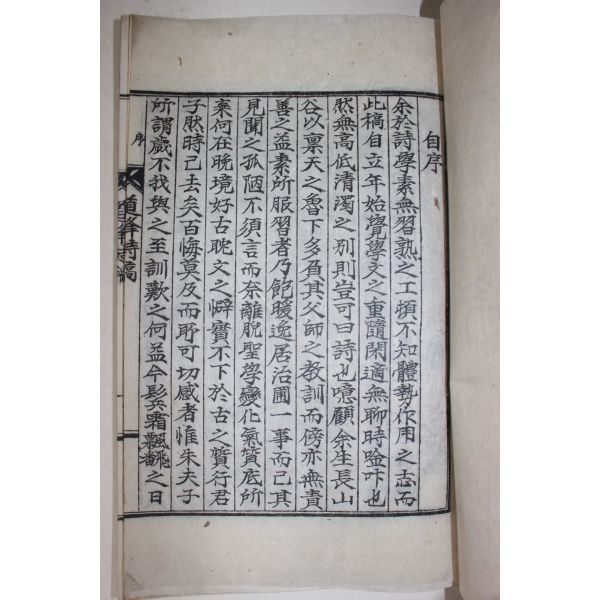 自序
余於詩學素無習熟之工頓不知體勢作用之志而
此稿自立年始覺學文之重隨閑適無聊時唫咔也
然無高低清濁之別則豈可曰詩也噫顧余生長山
谷以禀天之魯下多負其父師之教訓而傍亦無責
善之益素所服習者乃飽暖逸居治圃一事而已其
見聞之孤陋不須言而奈離脫聖學變化氣質底所
奈何在晚境好古耽文之癖實不下於古之質行君
子然時已去矣百悔莫及而耶可切感者惟朱夫子
所謂歲不我與之至訓歎之何益今髮霜飄飄之日
序
道峰詩稿